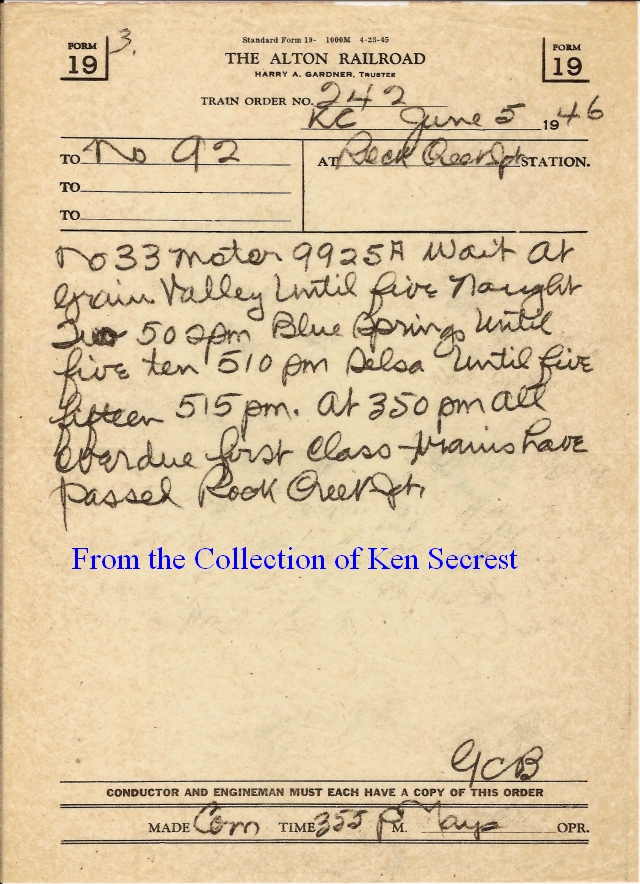 FORM 19
3.
Standard Form 19- 1000M 4-23-45
FORM 19
THE ALTON RAILROAD
HARRY A. GARDNER, TRUSTEE
TRAIN ORDER NO. 242
KC June 5 1946
TO No 92
AT Rock Creek Jct STATION.
TO
TO
No 33 motor 9925A Wait at
Grain Valley Until five Naught
Two 502pm Blue Springs Until
five ten 510 pm Selsa Until five
fifteen 515 pm. At 350 pm all
Overdue first Class trains have
passed Rock Creek Jct,
From the Collection of Ken Secrest
GCB
CONDUCTOR AND ENGINEMAN MUST EACH HAVE A COPY OF THIS ORDER
MADE Com TIME 355 P M. Mays OPR.